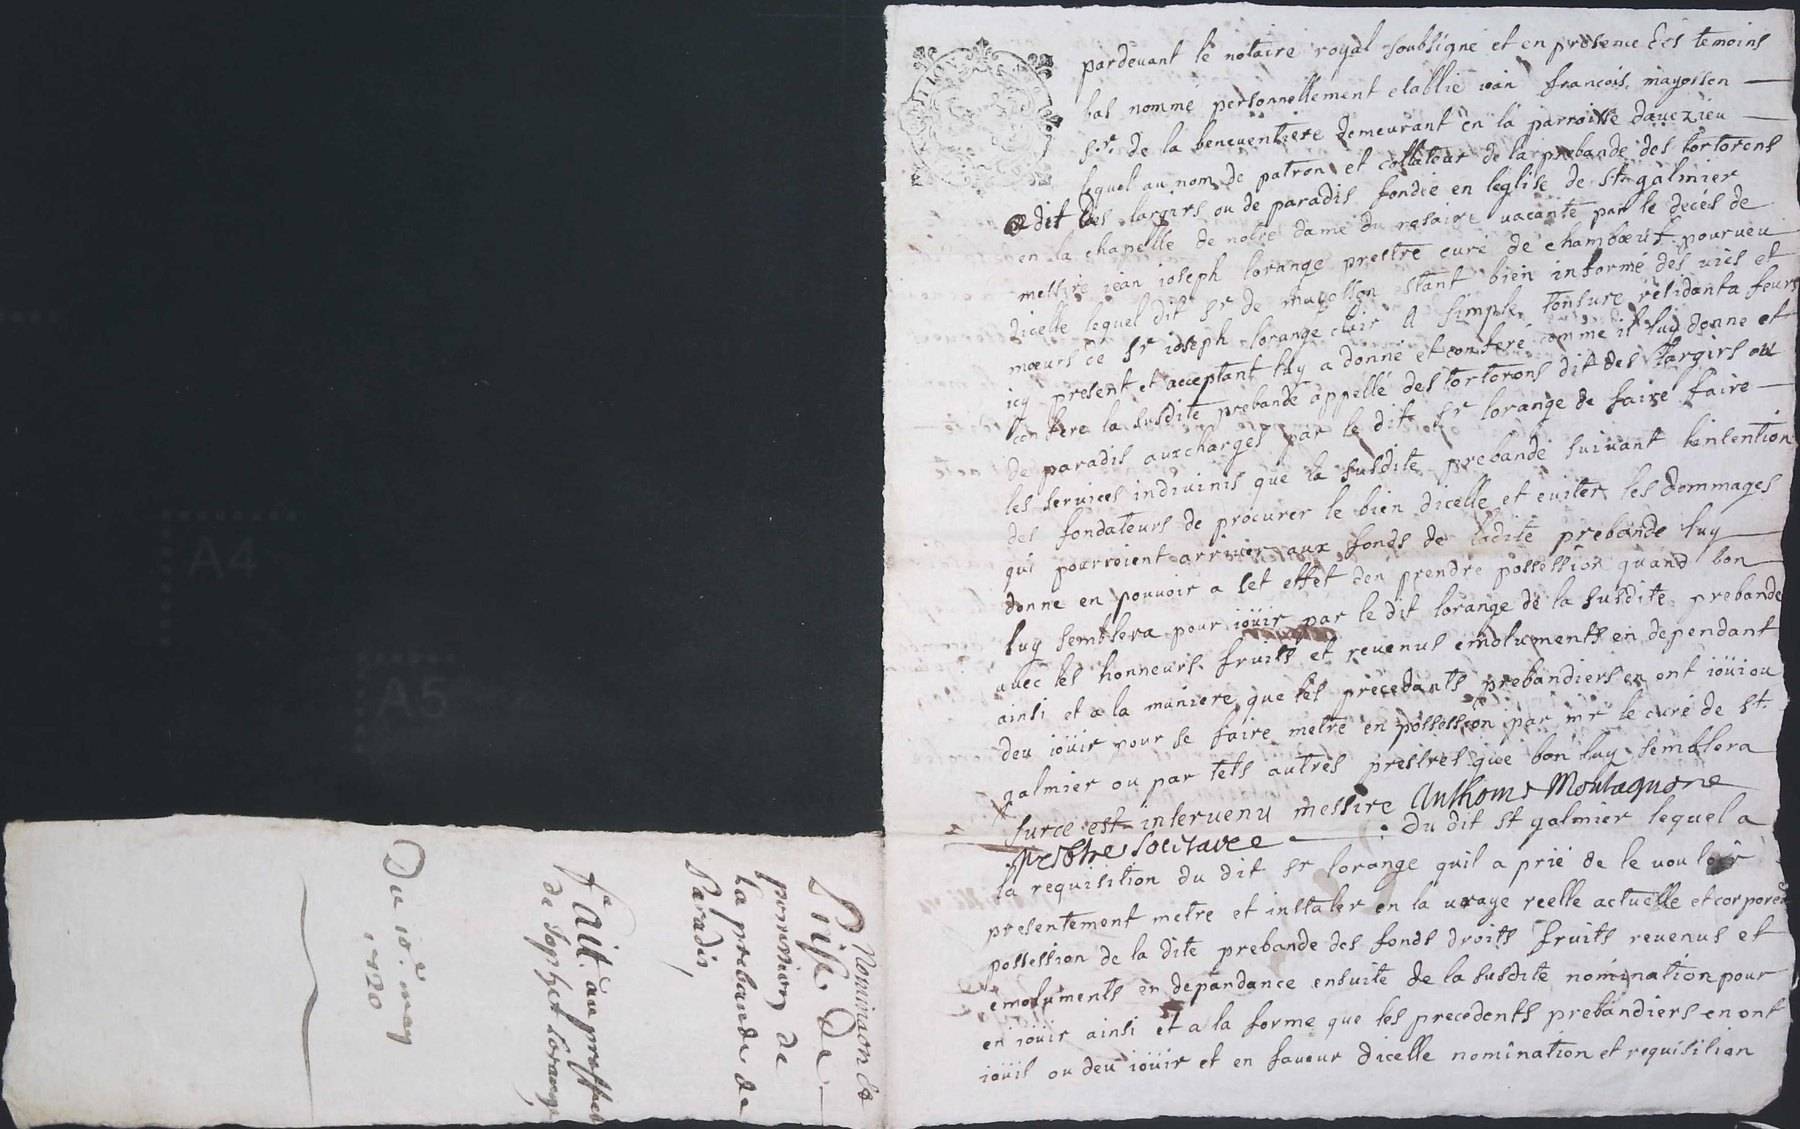 pardevant le notaire royal soubsigné et en presence des temoins
bas nommé personnellement etablie jean françois mayossen
sr. de la beneuentiere demeurant en la parroisse dauezieu
lequel au nom de patron et collateur de la prebande des tortorons
dit des largirs ou de paradis fondée en leglise de st galmier
en la chapelle de notre dame du rosaire vacante par le decés de
messire jean ioseph lorange prestre curé de chambœuf pourueu
dicelle lequel dit sr de mayossen estant bien informé des uies et
mœurs de sr ioseph lorange clair a simple tonsure residant a feurs
icy present et acceptant luy a donné et conferé comme il luy donne et
confere la susdite prebande appellé des tortorons dit des largirs ou
de paradis aux charges par le dit sr lorange de faire faire
les seruices indiuinis que la susdite prebande suiuant lintention
des fondateurs de procurer le bien dicelle et euiter les dommages
qui pourroient arriuer aux fonds de ladite prebande luy
donne en pouuoir a set effet den prendre possession quand bon
luy semblera pour ioüir par le dit lorange de la susdite prebande
auec les honneurs fruits et reuenus emoluments en dependant
ainsi et a la maniere que les precedants prebandiers en ont ioüi ou
deu ioüir pour se faire metre en possession par mr le curé de st
galmier ou par tels autres prestres que bon luy semblera
surce est interuenu messire Anthoine Montagnone
prestre socitaire du dit st galmier lequel a
la requisition du dit sr lorange quil a prié de le uouloir
presentement metre et instaler en la uraye reelle actuelle et corporelle
possession de la dite prebande des fonds droits fruits reuenus et
emoluments en depandance ensuite de la susdite nomination pour
en ioüir ainsi et a la forme que les precedents prebandiers en ont
ioüis ou deu ioüir et en faueur dicelle nomination et requisition
Nominaon et
Prise de
possession de
La prebande de
Paradis
fait au proffit
de Josphet Lorange
Du 10e may
1720
A4
A5